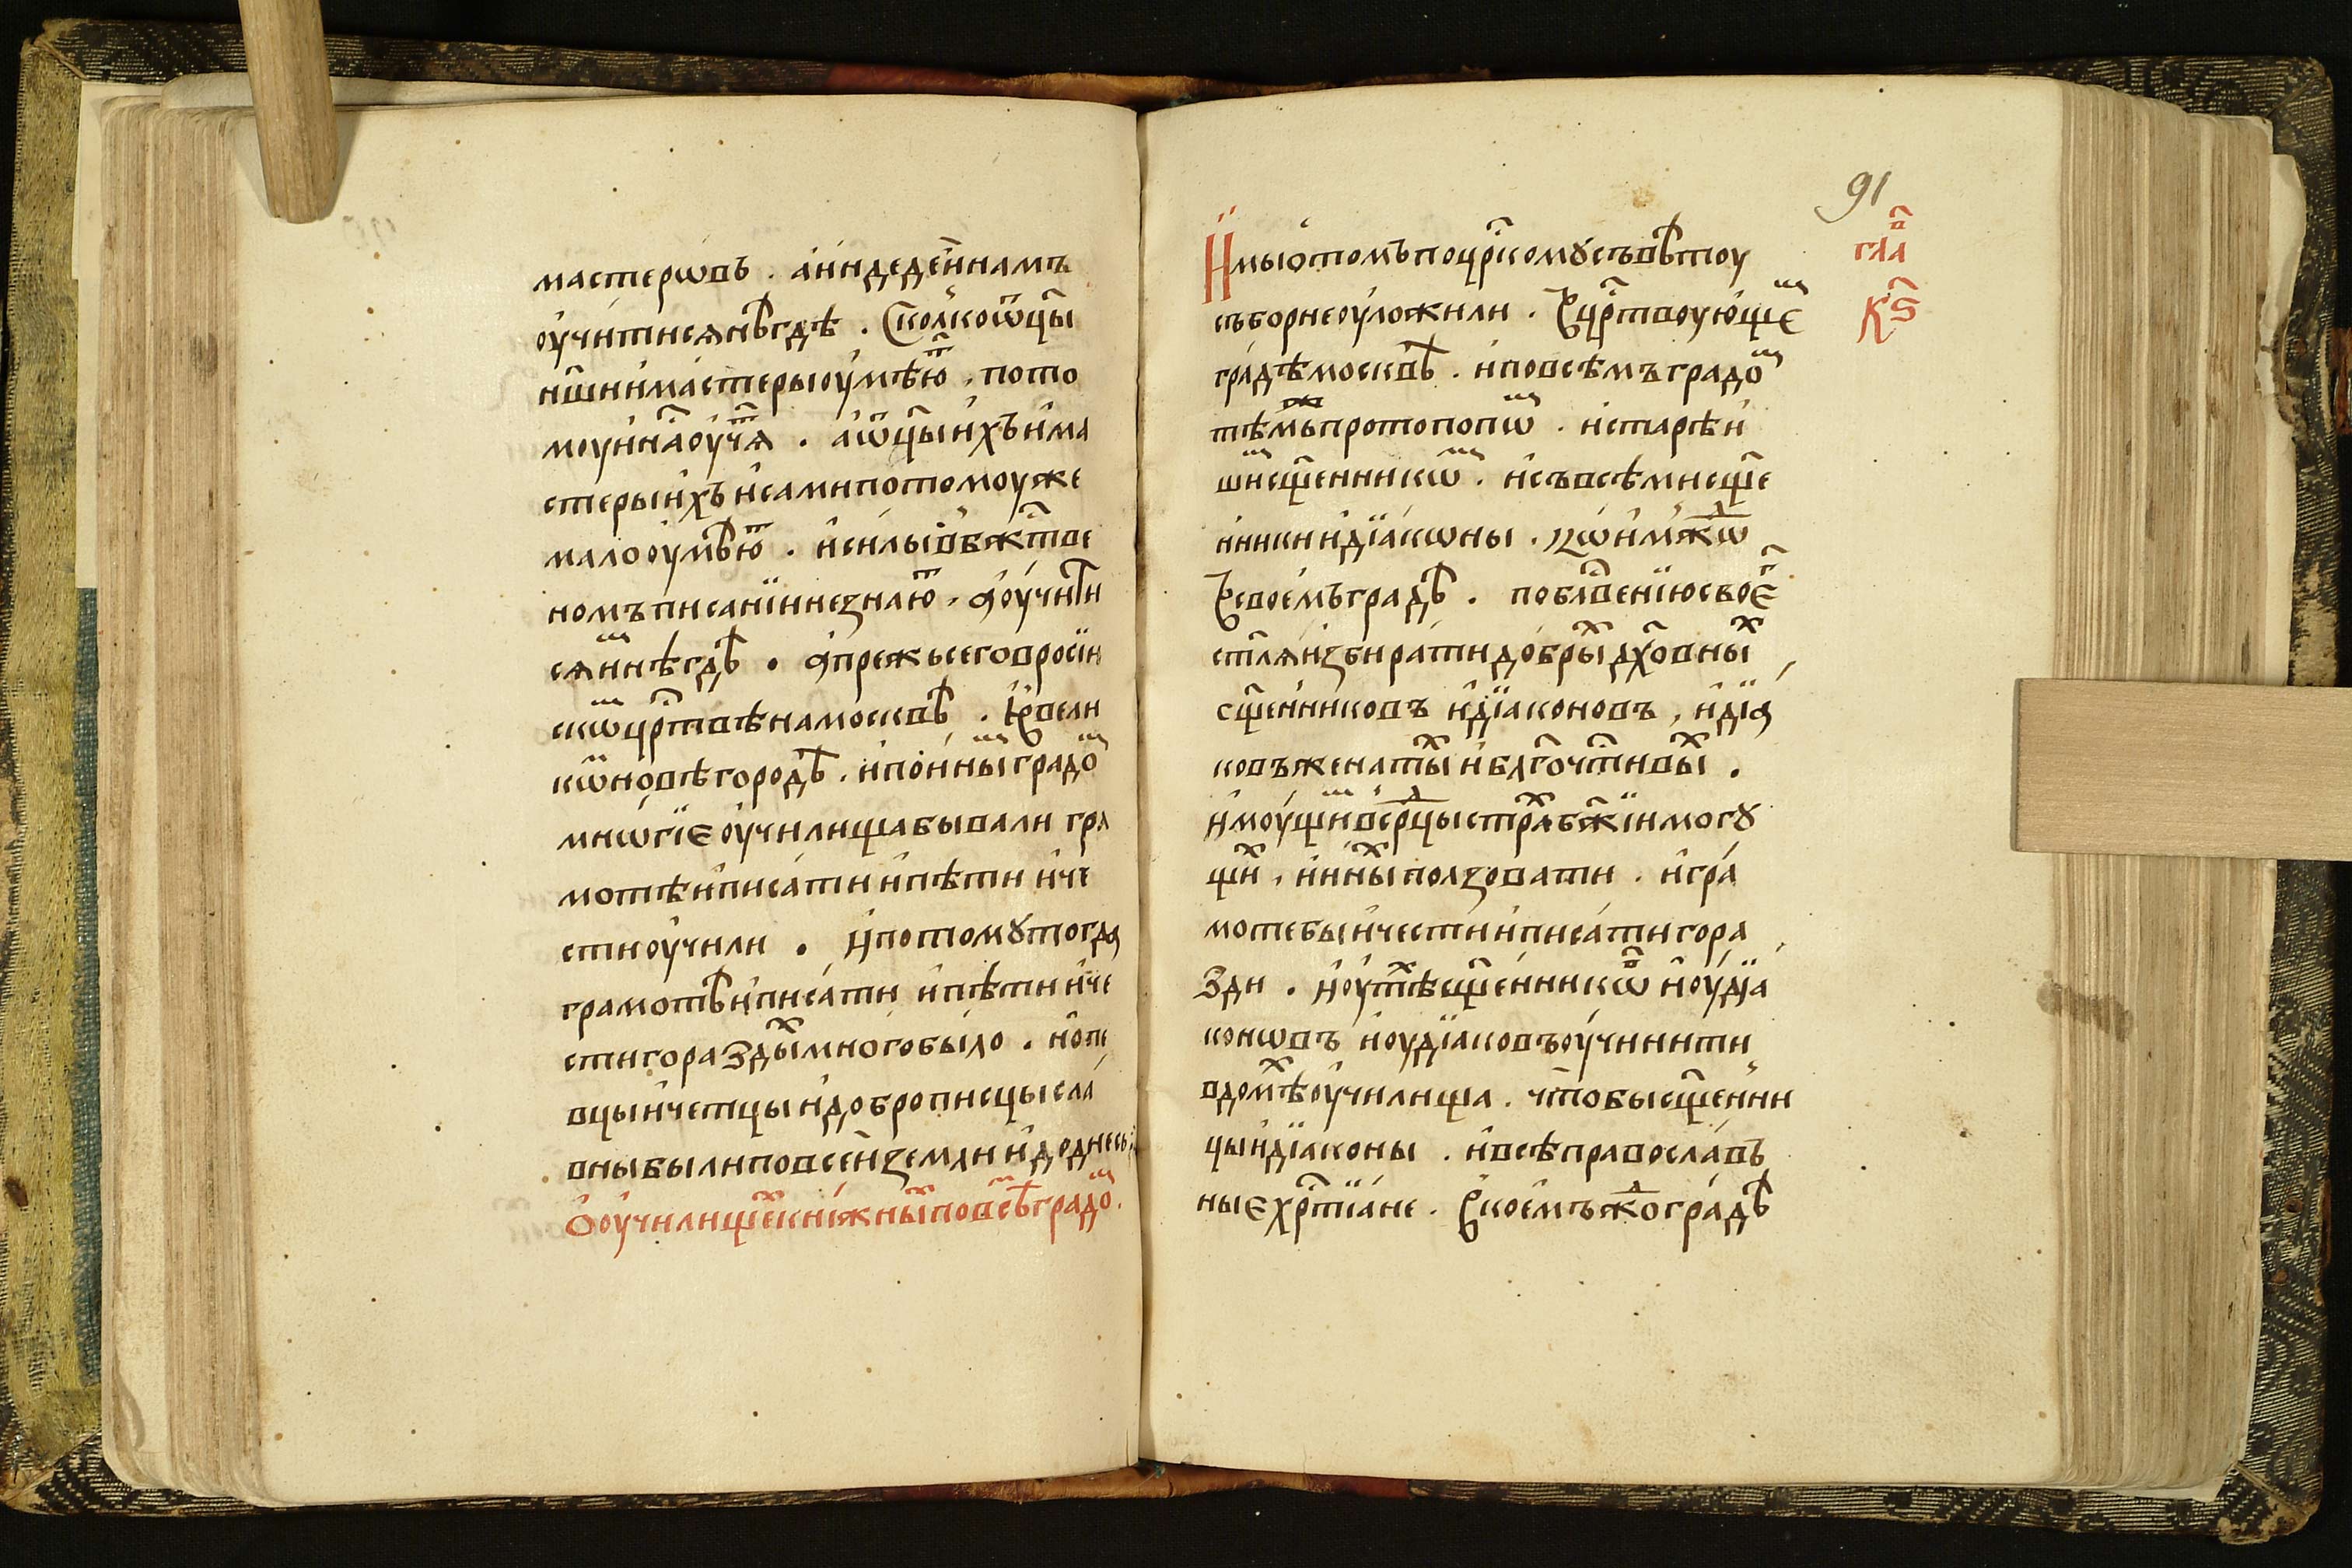 мастерѡвъ . а҆и҆ндедеи҆намъ
оу҆чи́тисѧнѣгдѣ . Сколкоѿц҃ы
и҆шииma҆стерыоу҆мѣю҆ⷮ , пото
моуи҆на҆оу҆чѧⷮ . а҆ѿц҃ыи҆хъи҆ма
стерыи҆хъи҆самипотомоуже
малооумѣюⷮ . и҆силыв҆бжⷭ҇тве
номъписанїинезнаюⷮ , а҆оу҆чити
сѧннѣгдѣ . а҆прежьсеговросїи
скоⷨцрⷭ҇твѣнамосквѣ . И҆вели
коⷨно́вѣгородѣ . и҆пои́ныⷨградоⷨ
мнѡгїѐоу҆чилищабывали гра
мотѣи҆писа́тии҆пѣти и҆че
стиоу҆чили . И҆потомꙋтогда
грамотѣи҆писа́ти и҆пѣтии҆че
стигораздыⷯмногобы́ло . нопѣ
вцыи҆четцыи҆доброписцысла́
вныбылиповсеи҆земли и҆доднесь
Ѻ҆оу҆чилищеⷯкни́жныⷯповсѣⷨградоⷨ .
91
гла҃в
к҃ѕ
И҆мыѻ҆томъпоцрⷭ҇комꙋсъвѣтоу
съборнеоу҆ложили . Вцрⷭ҇твоую́щеⷨ
гра́дѣмосквѣ . и҆повсѣмъградоⷨ
тѣмъжⷤпротопопоⷨ . и҆старѣи
шиⷨсщ҃енникоⷨ . и҆съвсѣмисще
нникии҆дїа́кѡны . коиⷨждо
Всвоемъградѣ . поблⷭ҇венїюсвоеⷢ
стл҃ѧи҆збира́тидо́брыⷯдх҃овныⷯ
сщ҃енниковъ и҆дїаконовъ , и҆дїа
ковъженатыⷯи҆блгⷭ҇очтⷭ҇ивыⷯ .
и҆моу́щиⷨвсердцыстраⷯбж҃їимогꙋ
щиⷯ , и҆и҆ныⷯползовати . и҆гра́
мотебыи҆честии҆писа́тигора
зди . и҆оу҆тѣⷯсщ҃енникоⷡ и҆оу҆дїа
конѡвъ и҆оу҆дїаковъоу҆чинити
вдомѣⷯоу҆чилища . чтобысщ҃енни
цыи҆дїа́коны . и҆всѣправосла́въ
ныѐхрⷭ҇тїа́не . Вкоемъждогра́дѣ